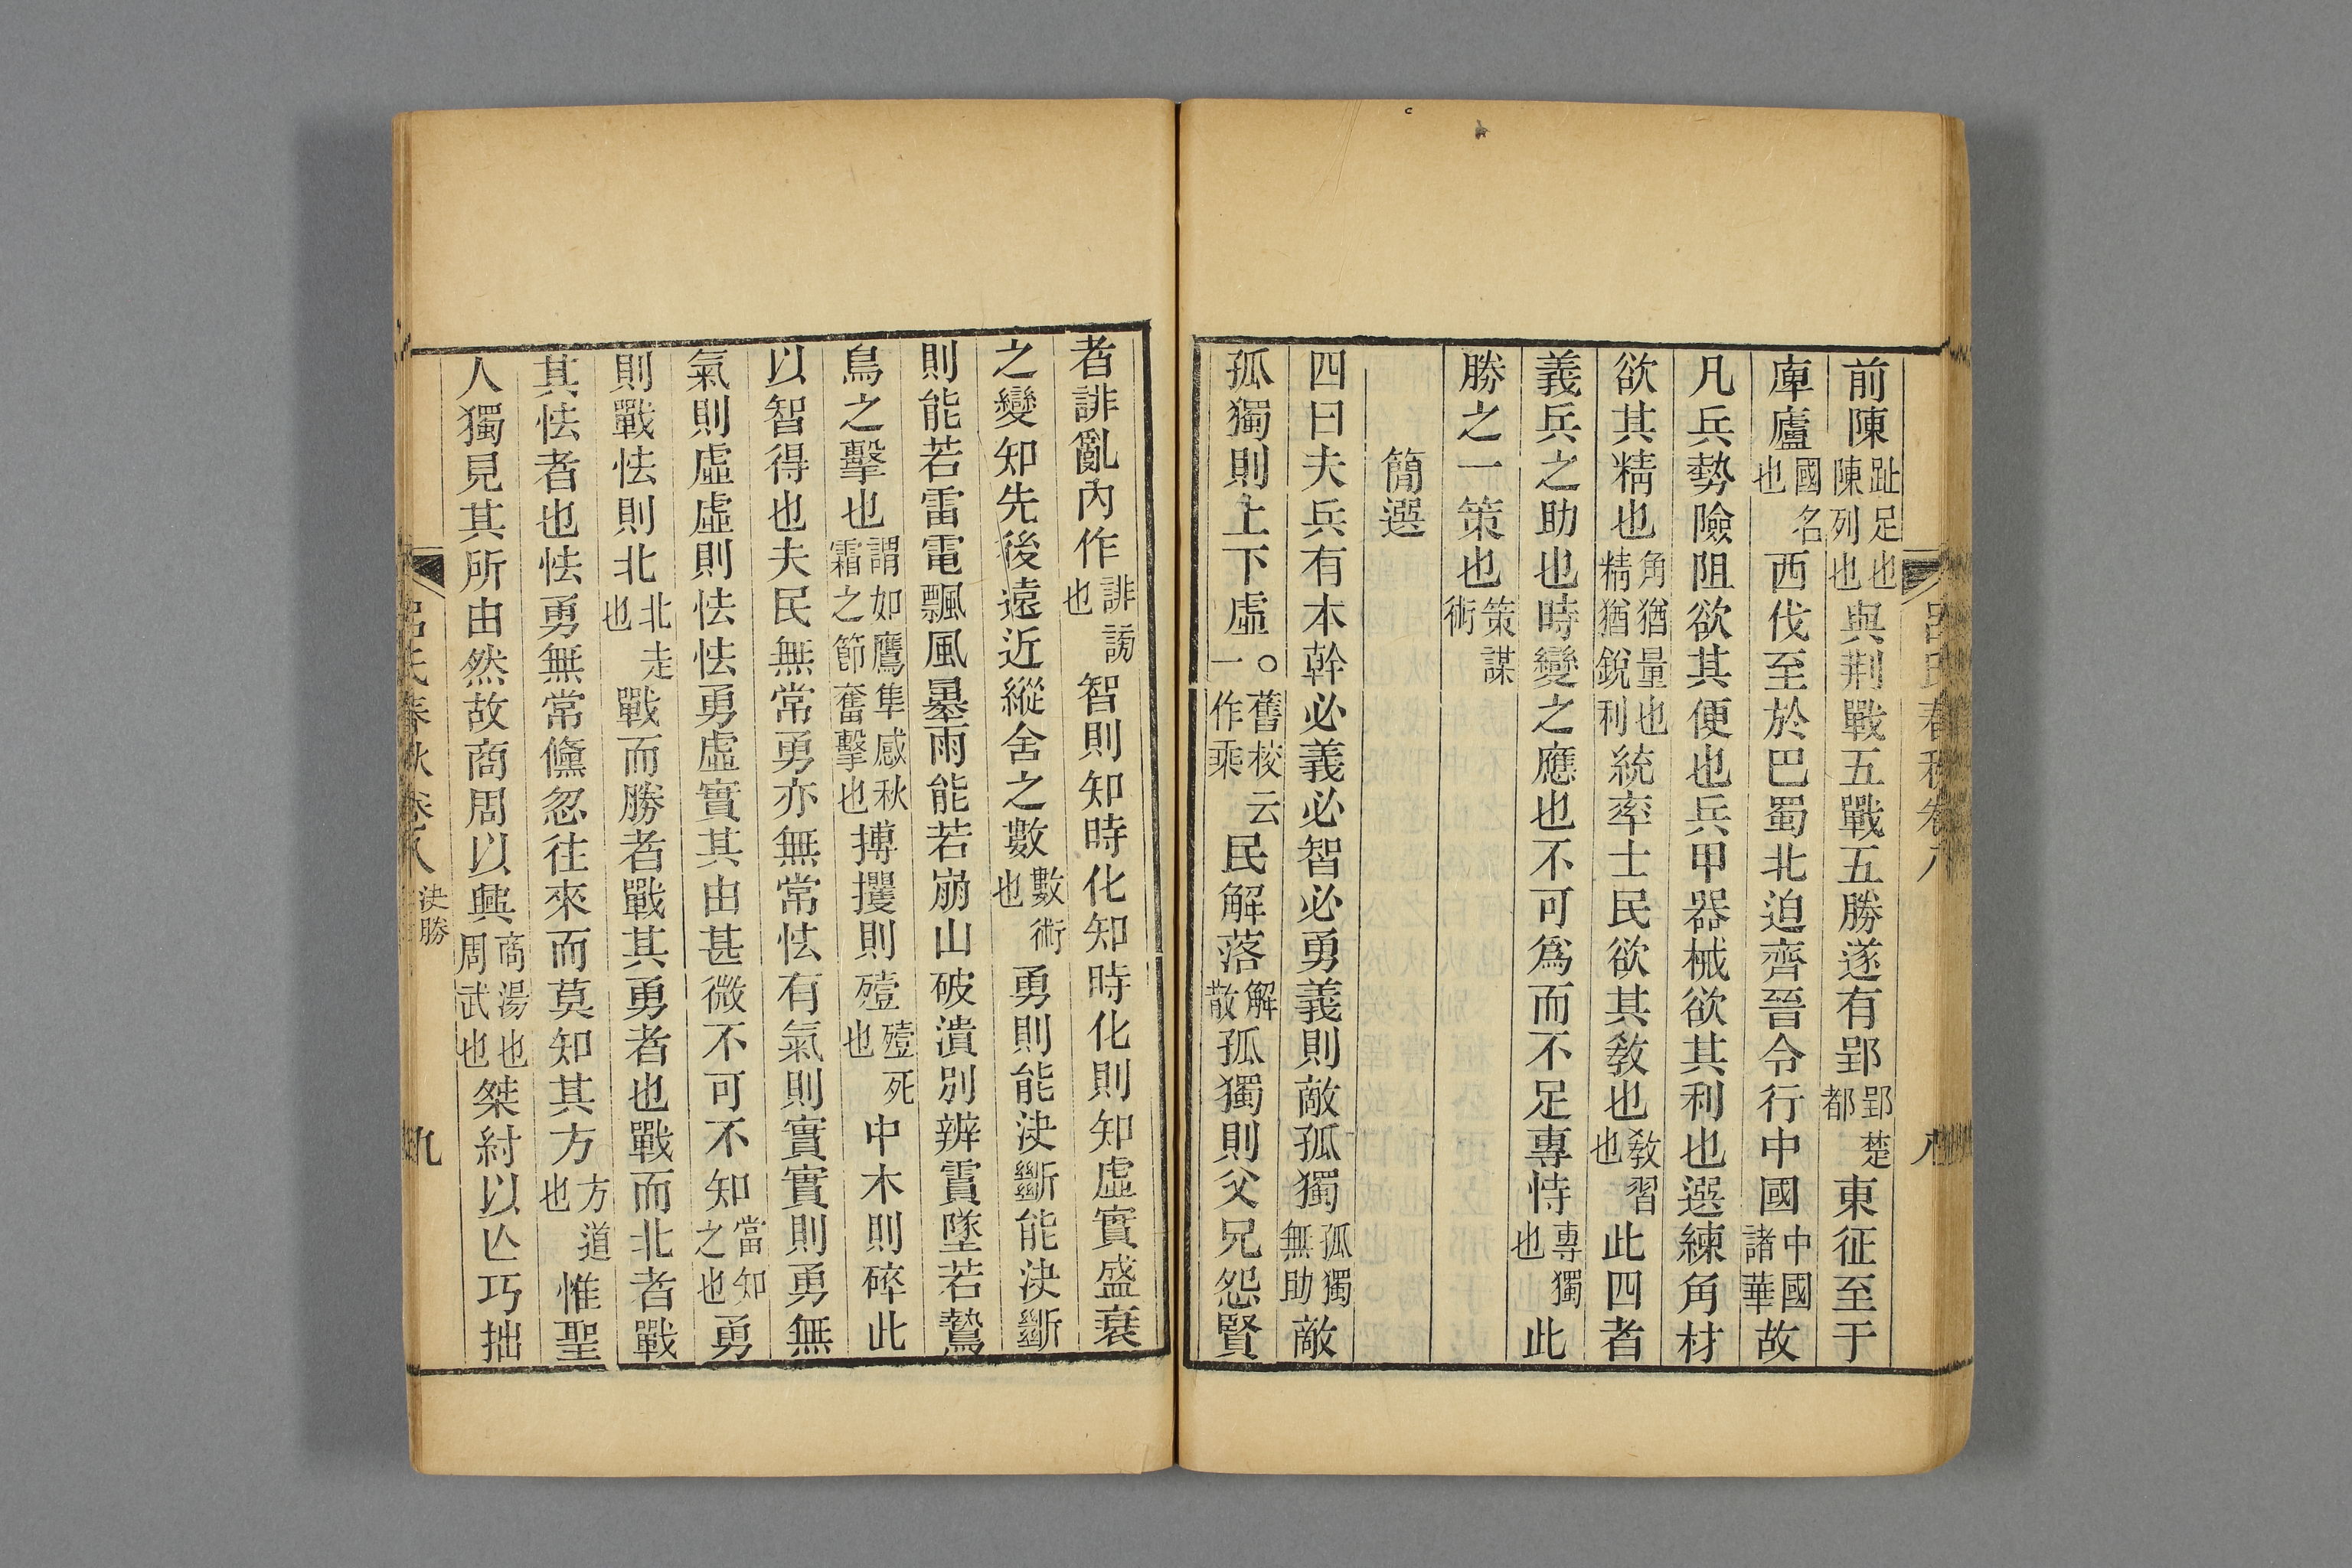 呂氏春秋卷八
八
前陳趾足也陳列也與荆戰五戰五勝遂有郢郢楚都東征至于
庳廬國名也西伐至於巴蜀北迫齊晉令行中國中國諸華故
凡兵勢險阻欲其便也兵甲器械欲其利也選練角材
欲其精也角猶量也精猶銳利統率士民欲其敎也敎習也此四者
義兵之助也時變之應也不可爲而不足專恃專獨也此
勝之一策也策謀術
簡選
四曰夫兵有本幹必義必智必勇義則敵孤獨孤獨無助敵
孤獨則上下虛○舊校云一作乘民解落解散孤獨則父兄怨賢
者誹亂內作誹謗也智則知時化知時化則知虛實盛衰
之變知先後遠近縱舍之數數術也勇則能決斷能決斷
則能若雷電飄風暴雨能若崩山破潰別辨霣墜若鷙
鳥之擊也謂如鷹隼感秋霜之節奮擊也搏攫則殪殪死也中木則碎此
以智得也夫民無常勇亦無常怯有氣則實實則勇無
氣則虛虛則怯怯勇虛實其由甚微不可不知當知之也勇
則戰怯則北北走也戰而勝者戰其勇者也戰而北者戰
其怯者也怯勇無常儵忽往來而莫知其方方道也惟聖
人獨見其所由然故商周以興商湯也周武也桀紂以亾巧拙
呂氏春秋卷八 決勝
九